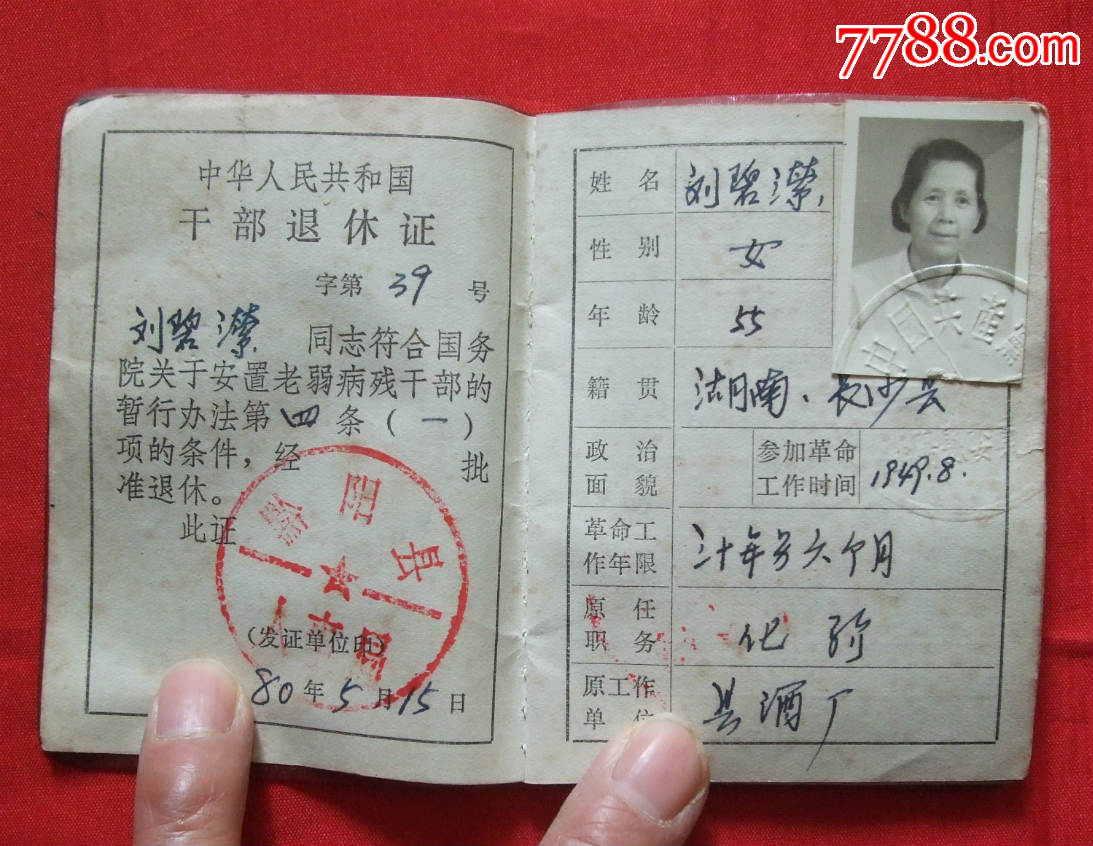 7788.com
中华人民共和国
干部退休证
字第 39 号
刘碧濴 同志符合国务
院关于安置老弱病残干部的
暂行办法第四条(一)
项的条件,经 批
准退休。
此证
黔阳县
人事局
(发证单位印)
80年5月15日
姓名 刘碧濴
性别 女
年龄 55
籍贯 湖南、长沙县
政治面貌
参加革命工作时间 1949.8.
革命工作年限 三十年另六个月
原任职务 化验
原工作单位 县酒厂
中国共产